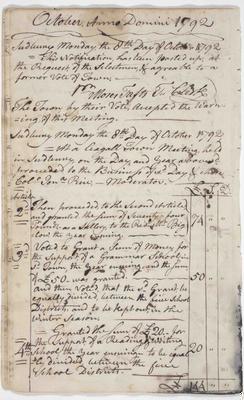 October Anno Domini 1792
Sudbury Monday the 8th Day of October 1792
This Notification has been posted up, at
the Request of the Selectmen, & agreeable to a
former Vote of Town
Town Clerk
The Town by their Vote, Accepted the Warn-
ing of this Meeting.
Sudbury Monday the 8th Day of October 1792
At a Leagall Town Meeting held
in Sudbury on the Day and Year above sd
proceeded to the Business of sd Day, & chose
Moderator
Then proceeded to the Second Article
and granted the sum of Seventy four
Pounds as a Sallery, to the Revd
the year Ensuing
74
Voted to Grant a Sum of Money for
the Support of a Grammar School in
sd Town the Year ensuing and the sum
of £50 was granted
50
And then Voted that the sd Grant be
equally divided between the five School
Districts, and to be kept out in the
Winter Season
Granted the Sum of £20 for
the Support of a Reading & Writing
School the year ensuing to be equal
20
ly divided between the five
School Districts
£ 144